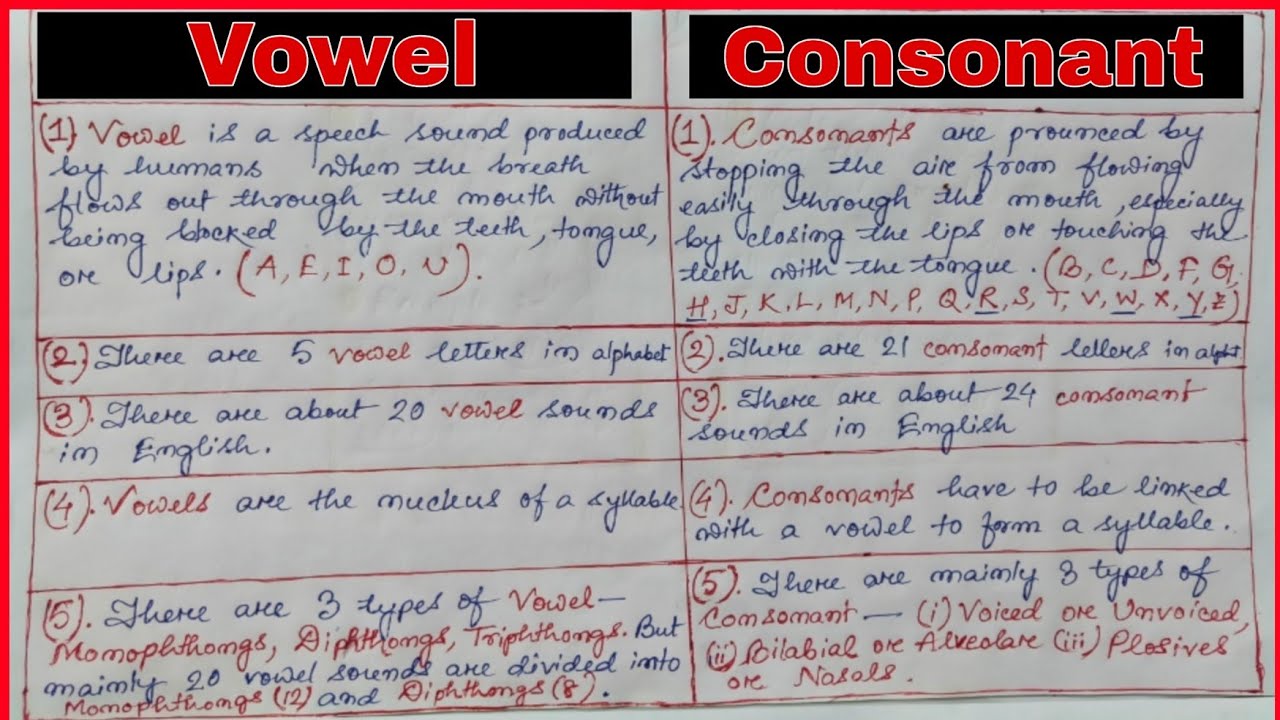 Vowel
Consonant
(1) Vowel is a speech sound produced
by humans when the breath
flows out through the mouth without
being blocked by the teeth, tongue,
or lips. (A, E, I, O, U).
(1). Consonants are prounced by
stopping the air from flowing
easily through the mouth, especially
by closing the lips or touching the
teeth with the tongue. (B, C, D, F, G,
H, J, K, L, M, N, P, Q, R, S, T, V, W, X, Y, Z)
(2) There are 5 vowel letters in alphabet
(2). There are 21 consonant letters in alphabet
(3). There are about 20 vowel sounds
in English.
(3). There are about 24 consonant
sounds in English
(4). Vowels are the nucleus of a syllable.
(4). Consonants have to be linked
with a vowel to form a syllable.
(5). There are 3 types of Vowel—
Monophthongs, Diphthongs, Triphthongs. But
mainly 20 vowel sounds are divided into
Monophthongs (12) and Diphthongs (8).
(5). There are mainly 3 types of
Consonant — (i) Voiced or Unvoiced,
(ii) Bilabial or Alveolar (iii) Plosives
or Nasals.